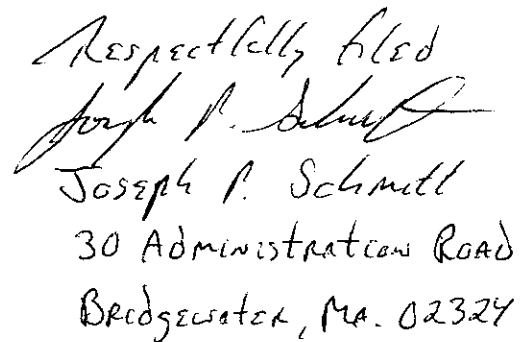 Respectfully filed
Joseph P. Schmitt
Joseph P. Schmitt
30 Administration Road
Bridgewater, MA. 02324